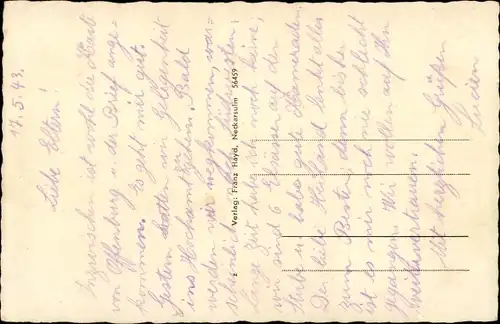 17.5.43.
Liebe Eltern!
Inzwischen ist wohl die Karte
von Offenburg u. der Brief ange-
kommen. Es geht mir gut.
Gestern hatten wir Gelegenheit
ins Hochamt zu gehen. Bald
werden wir wegkommen, wahr-
scheinlich
lange Zeit habe ich noch keine,
wir sind 6 Elsässer auf der
Stube u. habe gute Kameraden.
Der liebe Heiland lenkt alles
zum Besten, denn bisher
ist es mir noch nie schlecht
gegangen. Wir wollen auf Ihn
weitervertrauen.
Mit herzlichen Grüßen
z Verlag: Franz Hayd, Neckarsulm 56459